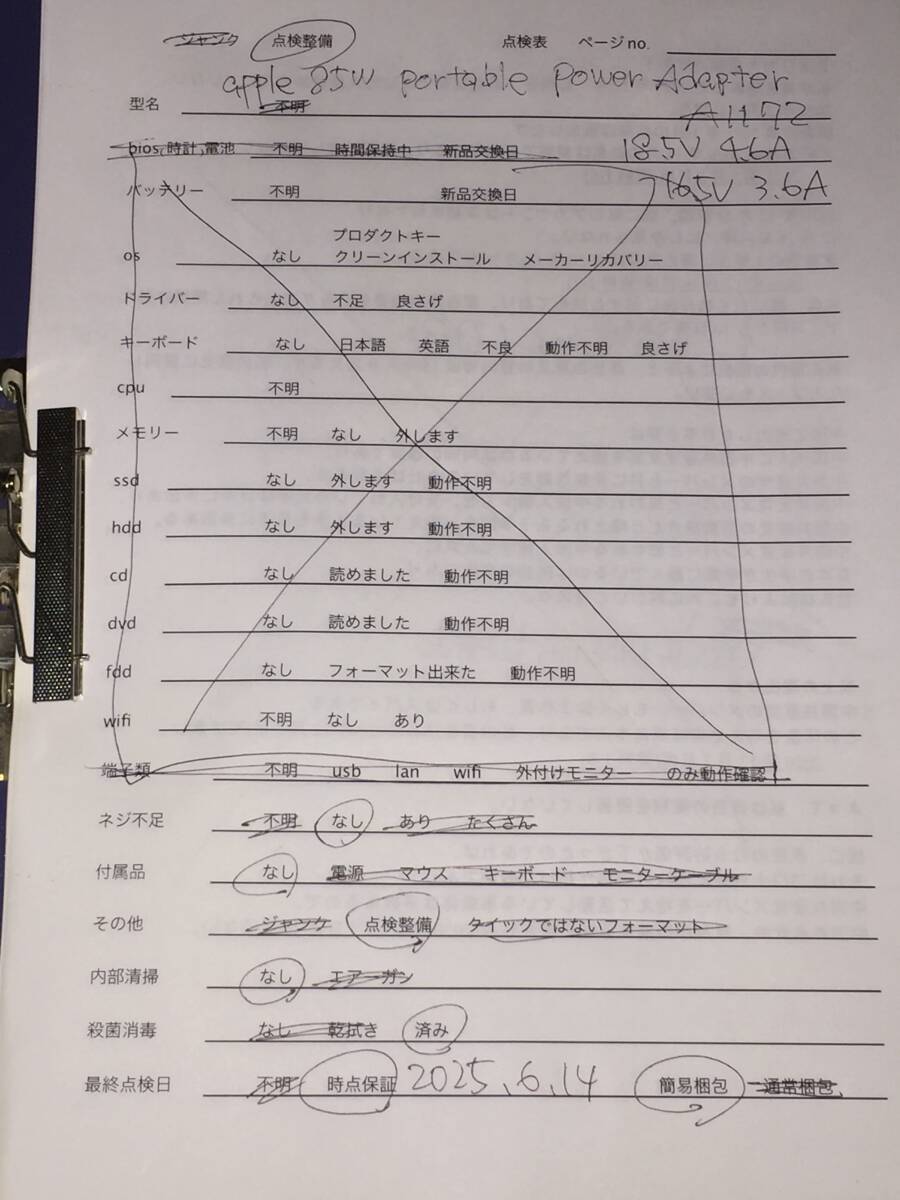 ジャンク 点検整備 点検表 ページno.
apple 85W portable Power Adapter
型名 不明 A1172
bios,時計,電池 不明 時間保持中 新品交換日 18.5V 4.6A
バッテリー 不明 新品交換日 16.5V 3.6A
プロダクトキー
os なし クリーンインストール メーカーリカバリー
ドライバー なし 不足 良さげ
キーボード なし 日本語 英語 不良 動作不明 良さげ
cpu 不明
メモリー 不明 なし 外します
ssd なし 外します 動作不明
hdd なし 外します 動作不明
cd なし 読めました 動作不明
dvd なし 読めました 動作不明
fdd なし フォーマット出来た 動作不明
wifi 不明 なし あり
端子類 不明 usb lan wifi 外付けモニター のみ動作確認
ネジ不足 不明 なし あり たくさん
付属品 なし 電源 マウス キーボード モニターケーブル
その他 ジャンク 点検整備 クイックではないフォーマット
内部清掃 なし エアーガン
殺菌消毒 なし 乾拭き 済み
最終点検日 不明 時点保証 2025.6.14 簡易梱包 通常梱包